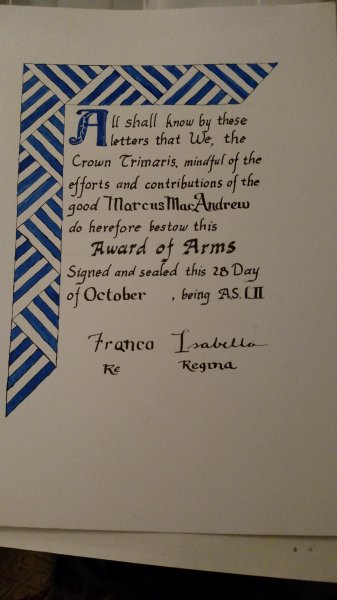 All shall know by these
letters that We, the
Crown Trimaris, mindful of the
efforts and contributions of the
good Marcus MacAndrew
do herefore bestow this
Award of Arms
Signed and sealed this 28 Day
of October , being A.S. LII
Franco Isabella
Re Regina